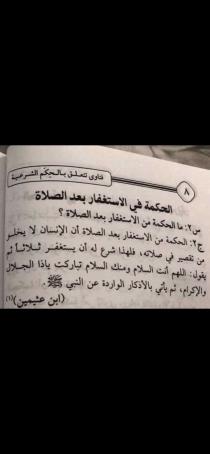 فتاوى تتعلق بالحِكَم الشرعية
٨
الحكمة في الاستغفار بعد الصلاة
س٢: ما الحكمة من الاستغفار بعد الصلاة؟
ج٢: الحكمة من الاستغفار بعد الصلاة أن الإنسان لا يخلو
من تقصير في صلاته، فلهذا شرع له أن يستغفر ثلاثاً ثم
يقول: اللهم أنت السلام ومنك السلام تباركت ياذا الجلال
والإكرام، ثم يأتي بالأذكار الواردة عن النبي ﷺ.
(ابن عثيمين)(١)